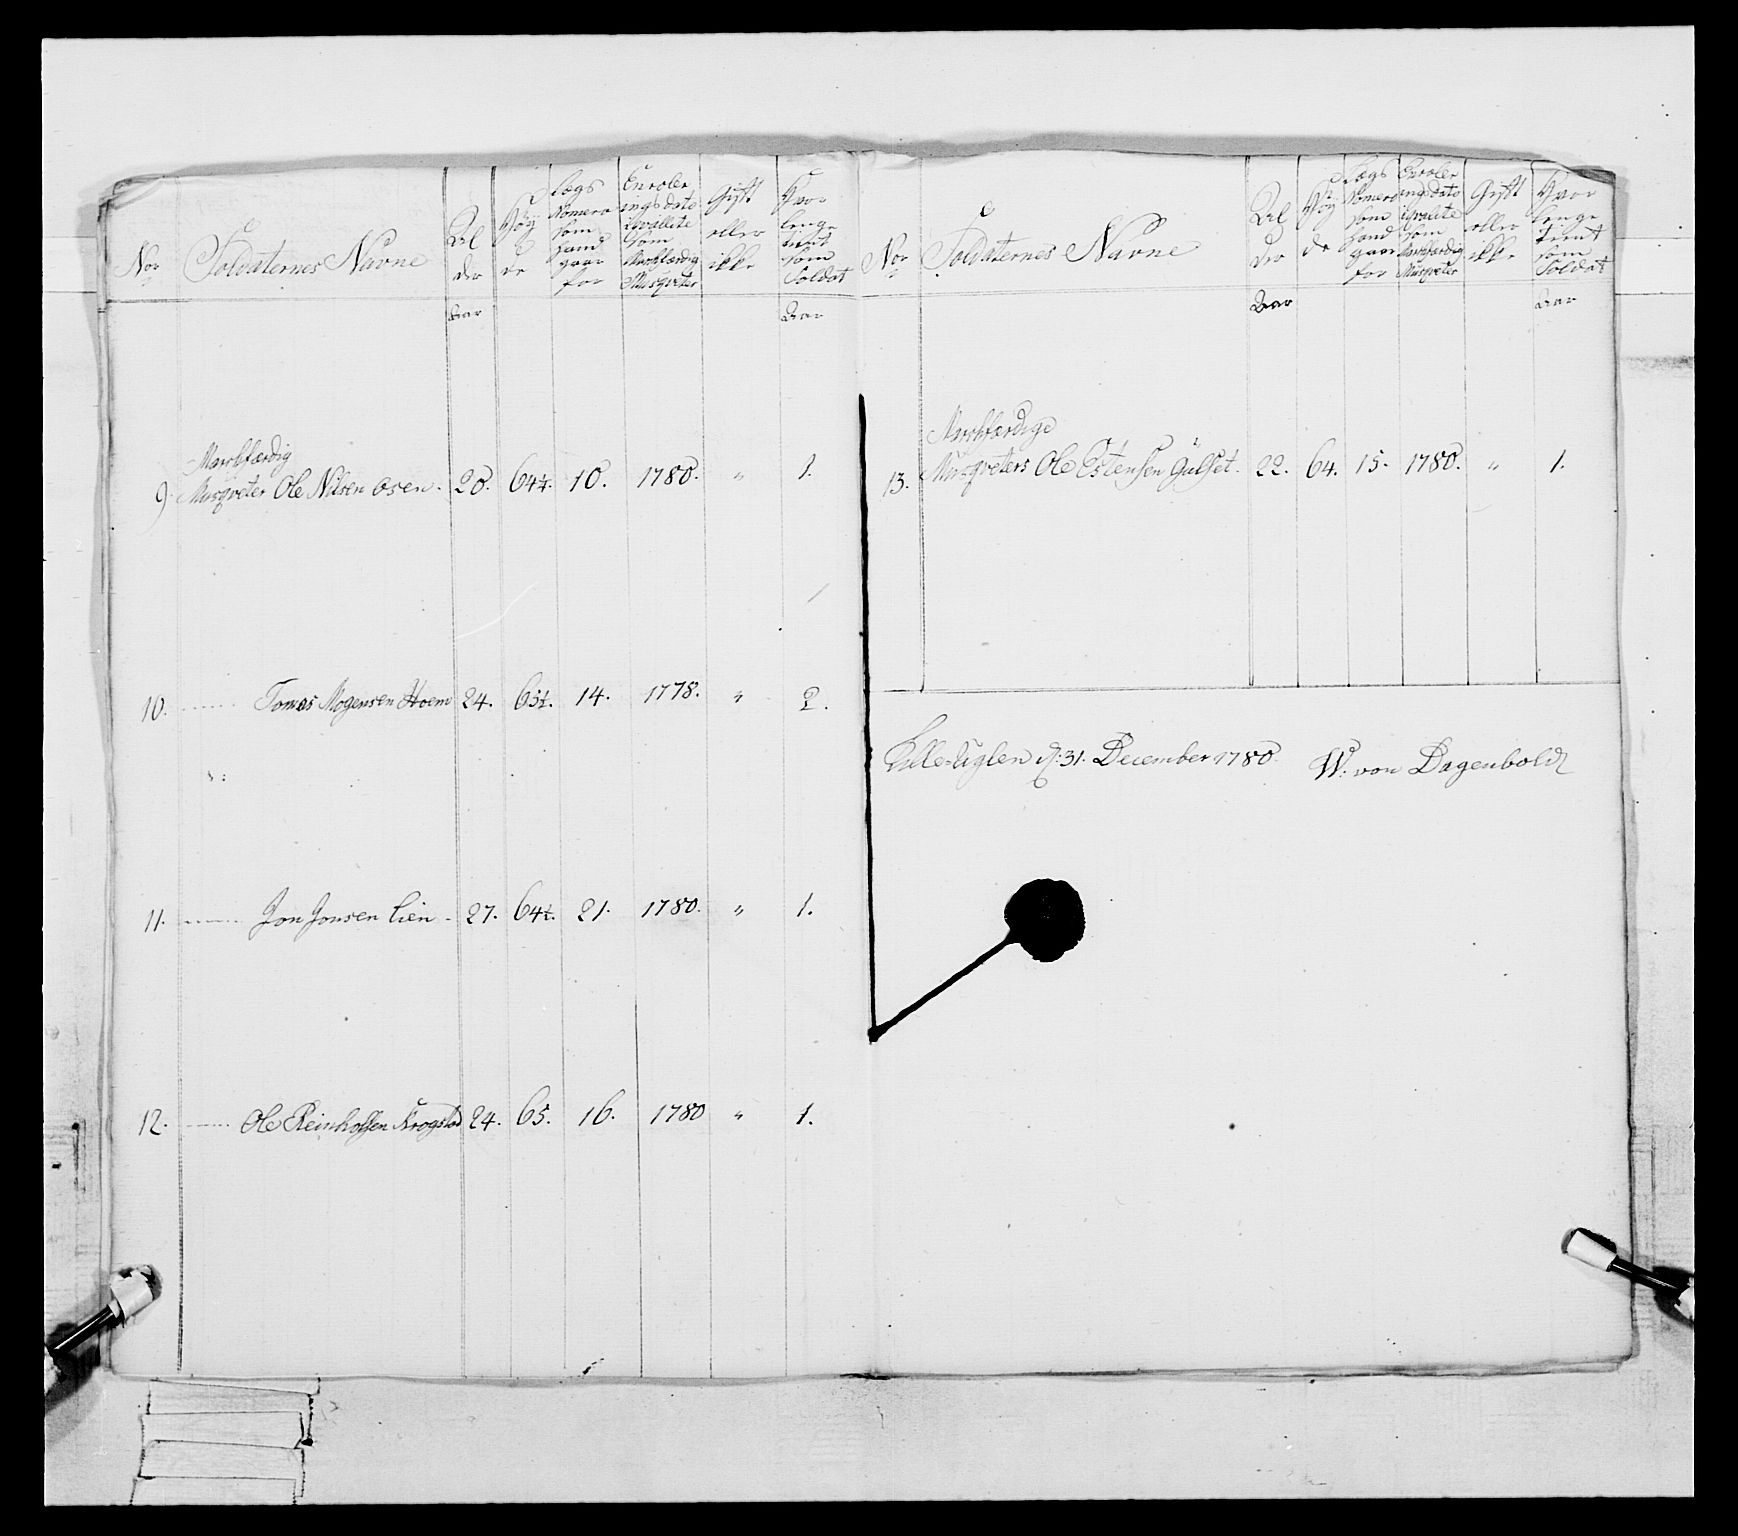 No:
Soldaternes Navne
Al
der
Høy
de
Lægs
Nomero
som
hand
gaar
for
Enroler
ings dato
i qvalite
som
Marchfærdig
Musqveter
Gift
eller
ikke
Hvor
lenge
tient
som
Soldat
Aar
Aar
Marchfærdig
9. Musqveter Ole Nilsen Osen. 20. 64½. 10. 1780. " 1.
10. Tomas Mogensen Hoem 24. 65½. 14. 1778. " 2.
11. Jon Jonsen Lien 27. 64½. 21. 1780. " 1.
12. Ole Reinholtsen Krogstad 24. 65. 16. 1780 " 1.
No:
Soldaternes Navne
Al
der
Høy
de
Lægs
Nomero
som
hand
gaar
for
Enroler
ings dato
i qvalite
som
Marchfærdig
Musqveter
Gift
eller
ikke
Hvor
lenge
tient
som
Soldat
Aar
Aar
Marchfærdige
13. Musqveters Ole Estensen Gulset. 22. 64. 15. 1780. " 1.
d: 31. December 1780. W: von Dagenbold